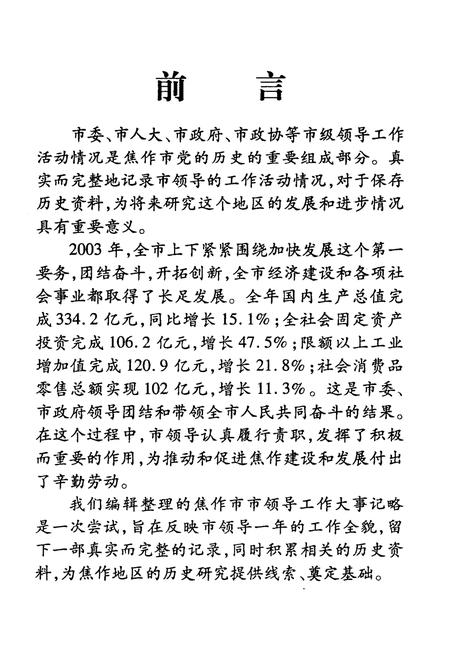 前　言
市委、市人大、市政府、市政协等市级领导工作
活动情况是焦作市党的历史的重要组成部分。真
实而完整地记录市领导的工作活动情况,对于保存
历史资料,为将来研究这个地区的发展和进步情况
具有重要意义。
2003 年,全市上下紧紧围绕加快发展这个第一
要务,团结奋斗,开拓创新,全市经济建设和各项社
会事业都取得了长足发展。全年国内生产总值完
成 334.2 亿元,同比增长 15.1%;全社会固定资产
投资完成 106.2 亿元,增长 47.5%;限额以上工业
增加值完成 120.9 亿元,增长 21.8%;社会消费品
零售总额实现 102 亿元,增长 11.3%。这是市委、
市政府领导团结和带领全市人民共同奋斗的结果。
在这个过程中,市领导认真履行责职,发挥了积极
而重要的作用,为推动和促进焦作建设和发展付出
了辛勤劳动。
我们编辑整理的焦作市市领导工作大事记略
是一次尝试,旨在反映市领导一年的工作全貌,留
下一部真实而完整的记录,同时积累相关的历史资
料,为焦作地区的历史研究提供线索、奠定基础。